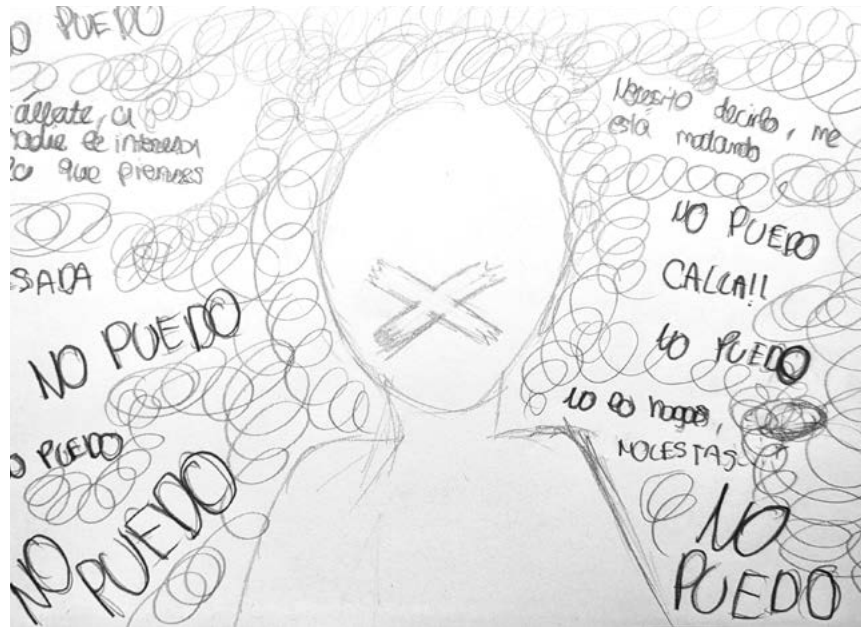 O PUEDO
állate, a
nadie le interesa
lo que piensas
SADA
NO PUEDO
O PUEDO
NO PUEDO
Necesito decirlo, me
está matando
NO PUEDO
CALLA!!
NO PUEDO
NO lo hagas,
MOLESTAS
NO
PUEDO